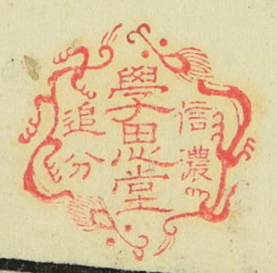 信濃
學思堂
追分